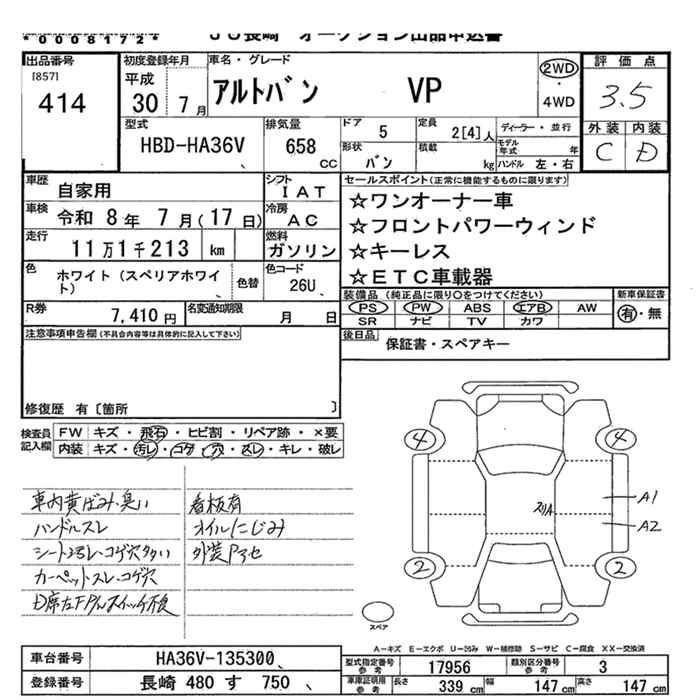 *0008172*
JU長崎 オークション出品申込書
出品番号 [857] 414
初度登録年月 平成 30年 7月
車名・グレード アルトバン VP
2WD・4WD
評価点 3.5
外装 C 内装 D
型式 HBD-HA36V
排気量 658 CC
ドア 5
定員 2[4]人
ディーラー・並行
形状 バン
積載 kg
モデル年式 年
ハンドル 左・右
車歴 自家用
シフト IAT
車検 令和 8年 7月(17日)
冷房 AC
走行 11万1千213 km
燃料 ガソリン
色 ホワイト(スペリアホワイト)
色替
色コード 26U
R券 7,410円
名変通知期限 月 日
セールスポイント(正常に機能するものに限ります)
☆ワンオーナー車
☆フロントパワーウィンド
☆キーレス
☆ETC車載器
装備品(純正品に限り○をつけてください)
PS PW ABS エアB AW
SR ナビ TV カワ
新車保証書 有・無
後日品 保証書・スペアキー
注意事項申告欄(不具合内容等は具体的に記入して下さい)
修復歴 有〔箇所 〕
検査員記入欄
FW キズ・飛石・ヒビ割・リペア跡・×要
内装 キズ・汚レ・コゲ・穴・スレ・キレ・破レ
車内黄ばみ・臭い
ハンドルスレ
シートスレ・コゲ穴多い
カーペットスレ・コゲ穴
D席左FPWスイッチ不良
看板有
オイルにじみ
外装アセ
4 4
スリA
A1
A2
2 2
スペア
A-キズ E-エクボ U-凹み W-補修跡 S-サビ C-腐食 XX-交換済
車台番号 HA36V-135300、
登録番号 長崎 480 す 750、
型式指定番号 参考 17956
類別区分番号 参考 3
車庫証明用 参考 長さ 339cm 幅 147cm 高さ 147cm